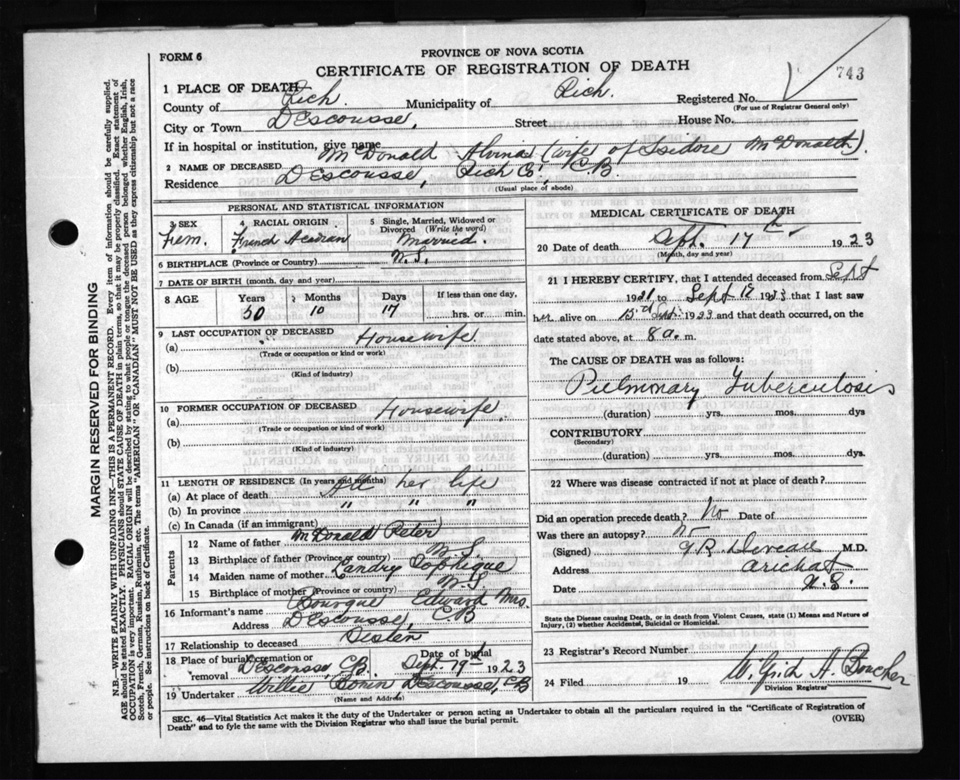 FORM 6
PROVINCE OF NOVA SCOTIA
CERTIFICATE OF REGISTRATION OF DEATH
743
1 PLACE OF DEATH
County of Rich. Municipality of Rich. Registered No.
(For use of Registrar General only)
City or Town DEscousse, Street House No.
If in hospital or institution, give name
2 NAME OF DECEASED McDonald Alvina (wife of Isidore McDonald).
Residence DEscousse, Rich Co. C.B.
(Usual place of abode)
PERSONAL AND STATISTICAL INFORMATION
3 SEX Fem.
4 RACIAL ORIGIN French Acadian
5 Single, Married, Widowed or Divorced (Write the word) Married.
6 BIRTHPLACE (Province or Country) N.S.
7 DATE OF BIRTH (month, day and year)
8 AGE Years 30 Months 10 Days 17 If less than one day, hrs. or min.
9 LAST OCCUPATION OF DECEASED
(a) Housewife
(Trade or occupation or kind or work)
(b)
(Kind of industry)
10 FORMER OCCUPATION OF DECEASED
(a) Housewife
(Trade or occupation or kind of work)
(b)
(Kind of industry)
11 LENGTH OF RESIDENCE (In years and months)
(a) At place of death All her life
(b) In province " " "
(c) In Canada (if an immigrant)
Parents
12 Name of father McDonald Peter
13 Birthplace of father (Province or country) N.S.
14 Maiden name of mother Landry Sophique
15 Birthplace of mother (Province or country) N.S.
16 Informant's name Bourque Edward Mrs.
Address DEscousse, C.B
17 Relationship to deceased Sister
18 Place of burial, cremation or removal DEscousse, C.B. Date of burial Sept. 19th 1923
19 Undertaker Willie DEscousse, C.B
(Name and Address)
MEDICAL CERTIFICATE OF DEATH
20 Date of death Sept. 17th 1923
(Month, day and year)
21 I HEREBY CERTIFY, that I attended deceased from Sept
1921 to Sept 17 1923 that I last saw
her alive on 15th Sept. 1923 and that death occurred, on
date stated above, at 8 a. m.
The CAUSE OF DEATH was as follows:
Pulmonary Tuberculosis
(duration) yrs. mos. dys
CONTRIBUTORY
(Secondary)
(duration) yrs. mos. dys.
22 Where was disease contracted if not at place of death?
Did an operation precede death? No Date of
Was there an autopsy? No
(Signed) Deveau M.D.
Address Arichat
Date N.S.
State the Disease causing Death, or in death from Violent Causes, state (1) Means and Nature of
Injury, (2) whether Accidental, Suicidal or Homicidal.
23 Registrar's Record Number
24 Filed 19 A. Boucher
Division Registrar
SEC. 46—Vital Statistics Act makes it the duty of the Undertaker or person acting as Undertaker to obtain all the particulars required in the "Certificate of Registration of
Death" and to fyle the same with the Division Registrar who shall issue the burial permit.
(OVER)
MARGIN RESERVED FOR BINDING
N.B.—WRITE PLAINLY WITH UNFADING INK—THIS IS A PERMANENT RECORD. Every item of information should be carefully supplied.
AGE should be stated EXACTLY. PHYSICIANS should STATE CAUSE OF DEATH in plain terms, so that it may be properly classified. Exact statement of
OCCUPATION is very important. RACIAL ORIGIN will be described by stating to what people or tongue the deceased person belonged, whether English, Irish,
Scotch, French, German, Russian, Ruthenian, etc. The terms "AMERICAN" OR "CANADIAN" MUST NOT BE USED as they express citizenship but not a race
or people. See instructions on back of Certificate.